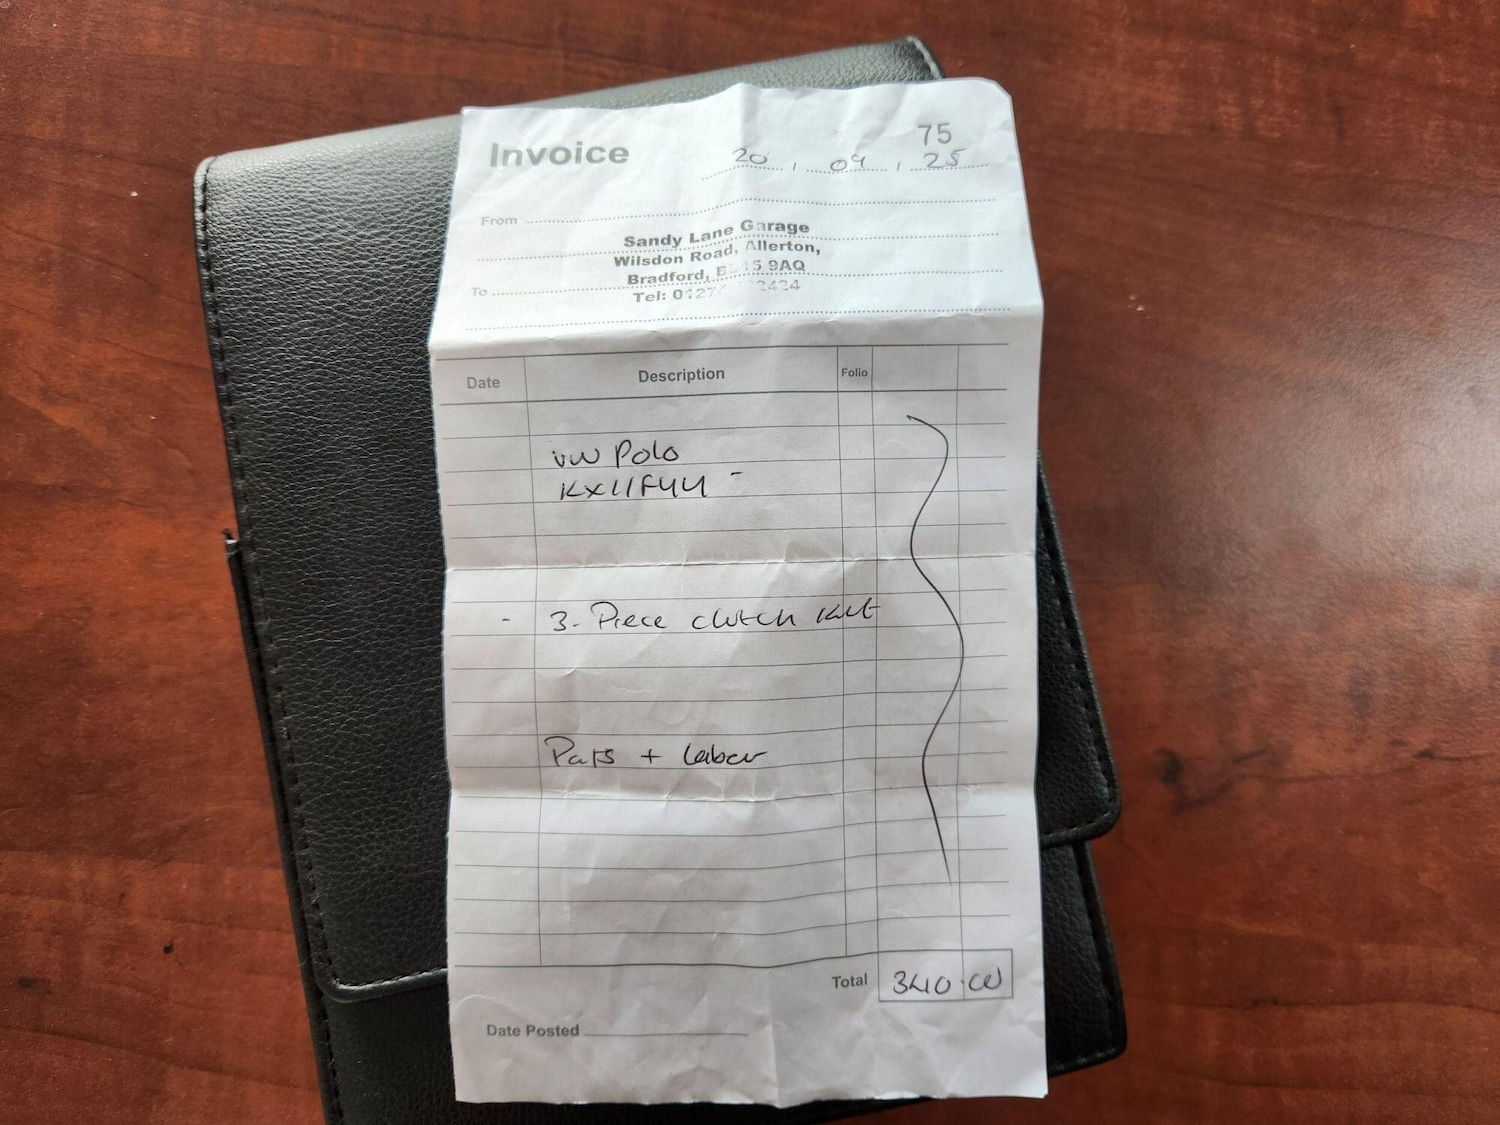 75
Invoice 20 , 09 , 25
From
Sandy Lane Garage
Wilsdon Road, Allerton,
Bradford, 15 9AQ
To
Tel:
Date Description Folio
VW Polo
- 3-Piece clutch Kit
Parts + Labour
Total 340.00
Date Posted